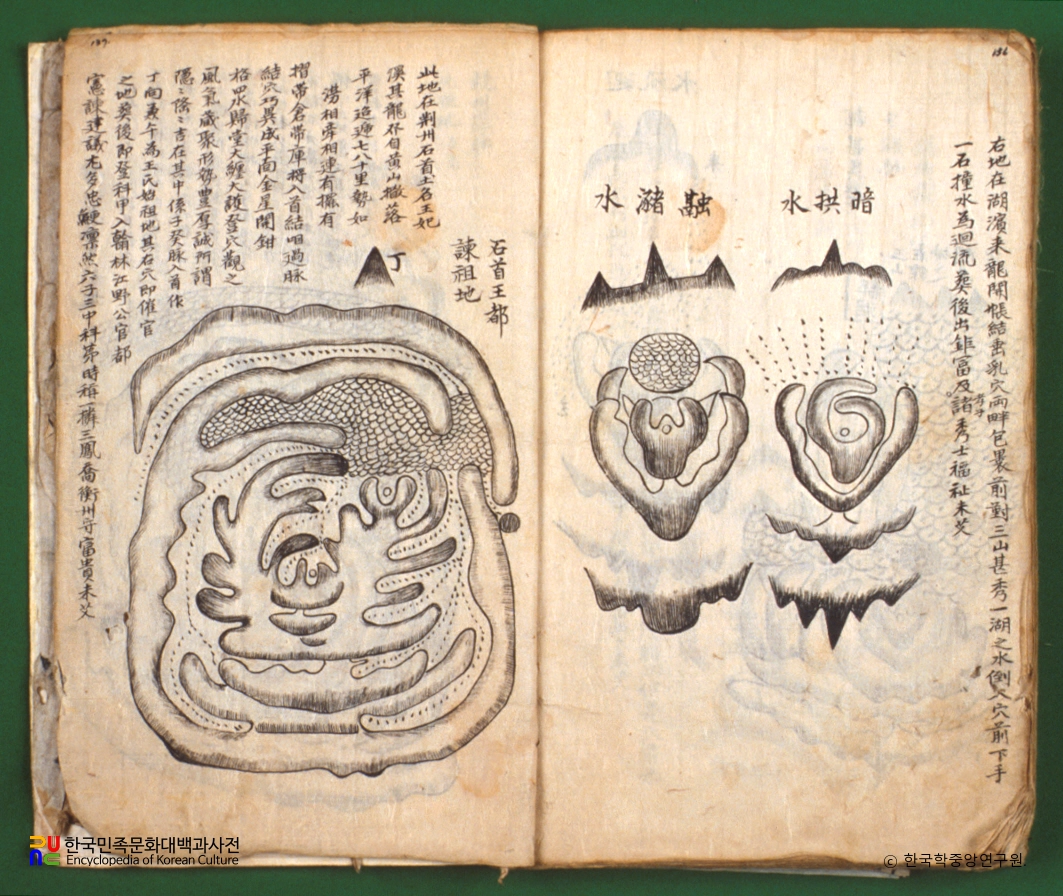 136
右地在湖濱来龍開帳結垂乳穴両畔包裹前對三山甚秀一湖之水倒入穴前下手
一石撞水為迴流葬後出鉅富及諸秀士福祉未艾
暗拱水
融瀦水
137
石首王都
諫祖地
此地在荆州石首土名王妃
溪其龍
自黄山撤落
平洋迤邐七八十里勢如
湧相牵相連有擺有
摺帶倉帶庫将入首結咽過脉
結穴巧異成平面金星開鉗
格四水歸堂大纏大護登穴觀之
風氣藏聚形勢豊厚誠所謂
隱隱條條吉在其中係子癸脉入首作
丁向兼午為王氏始祖地其右穴即催官
之地葬後即登科甲入翰林江野公官都
憲諌建議尤多忠鯁凛然六子三中科第時稱一
三鳳喬衡州守富貴未艾
丁
한국민족문화대백과사전
Encyclopedia of Korean Culture
© 한국학중앙연구원.